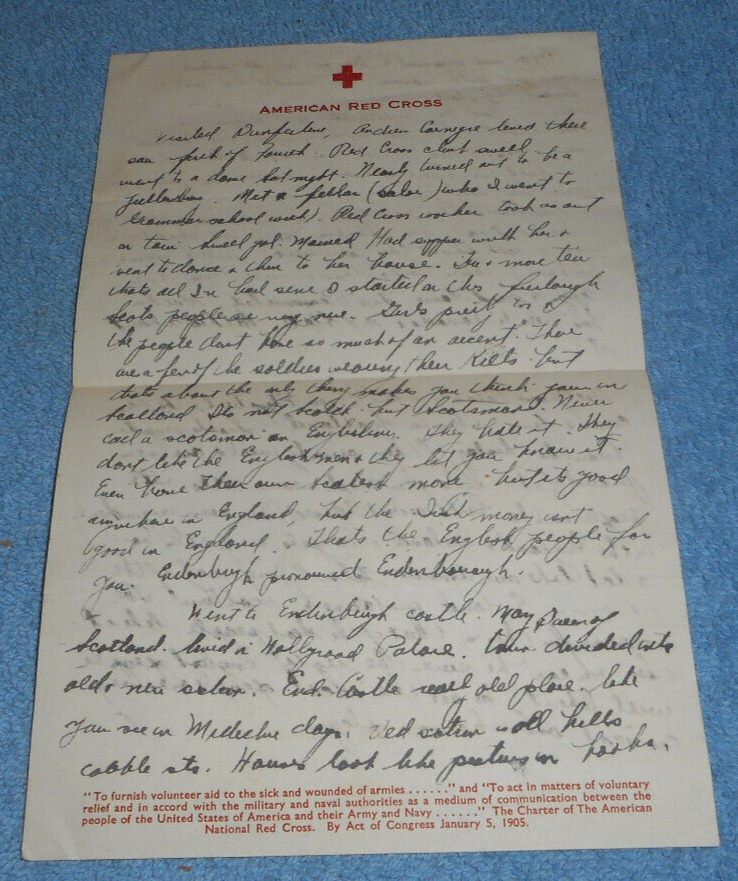 AMERICAN RED CROSS
Visited Dunferline, Andrew Carnegie lived there
saw firth of Fourth. Red Cross club swell
went to a dance Sat night. Nearly turned out to be a
Met a fellar (sailor) who I went to
Grammar school with). Red Cross worker took us out
on town. Swell gal. Married. Had supper with her &
went to dance & then to her house. In a more ten
thats all I've had since I started on this furlough
Scots people are very nice. Girls pretty too
the people dont have so much of an accent. There
are a few of the soldiers wearing their Kilts but
thats about the only thing makes you think your in
Scotland. Its not Scotch but Scotsmen. Never
call a scotsman an Englishmen. They hate it. They
dont like the Englishmen & they let you know it.
Even have their own money but its good
anywhere in England, but the Irish money isnt
good in England. Thats the English people for
you. Endenburgh pronounced Endenborough.
Went to Endenburgh castle. Mary Queen of
Scotland lived in Hollyrood Palace. town divided into
old & new section. End. Castle really old place. like
you see in Medieche days. Old section is all hills
cobble sts. Houses look like pictures in books.
"To furnish volunteer aid to the sick and wounded of armies . . . . . ." and "To act in matters of voluntary
relief and in accord with the military and naval authorities as a medium of communication between the
people of the United States of America and their Army and Navy . . . . . ." The Charter of The American
National Red Cross. By Act of Congress January 5, 1905.